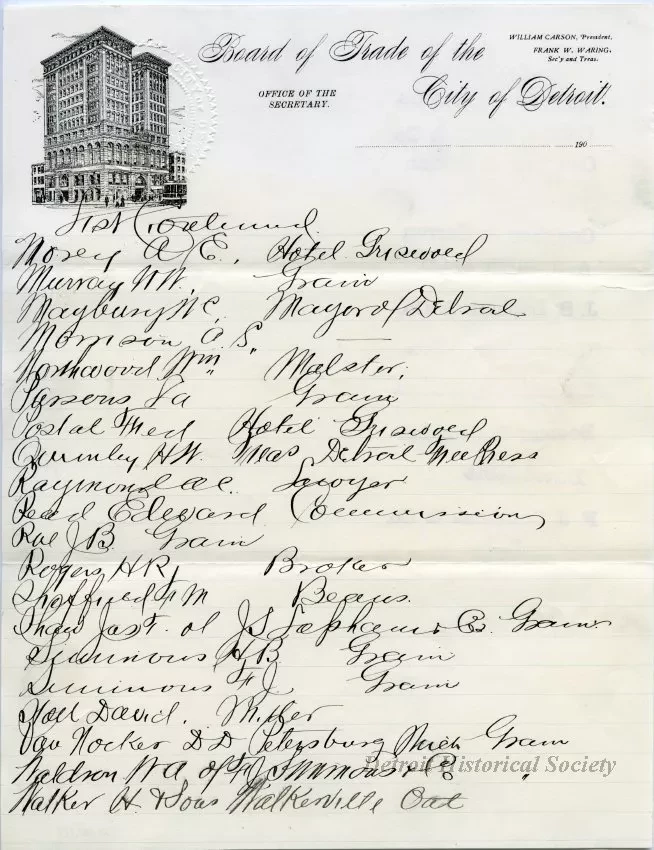 Board of Trade of the
City of Detroit.
WILLIAM CARSON, President.
FRANK W. WARING,
Sec'y and Treas.
OFFICE OF THE
SECRETARY.
190
List Continued
Morey A. E., Hotel Griswold
Murray W W, Grain
Maybury W C, Mayor of Detroit
Morrison A. S.
Northwood Wm Malster,
Parsons Grain
Postal Fred Hotel Griswold
Quimby H W Detroit
Raymond A C. Lawyer
Read Edward Commission
Rae J. B. Grain
Rogers H R, Broker
Sheffield F M Beans.
Shaw Jas T. of J S Lapham & Co. Grain
Simmons H B Grain
Simmons F J Grain
Stott David. Miller
Van Nocker D D Petersburg Mich Grain
Waldron W A of F J Simmons & Co "
Walker H. & Sons Walkerville Ont
Detroit Historical Society